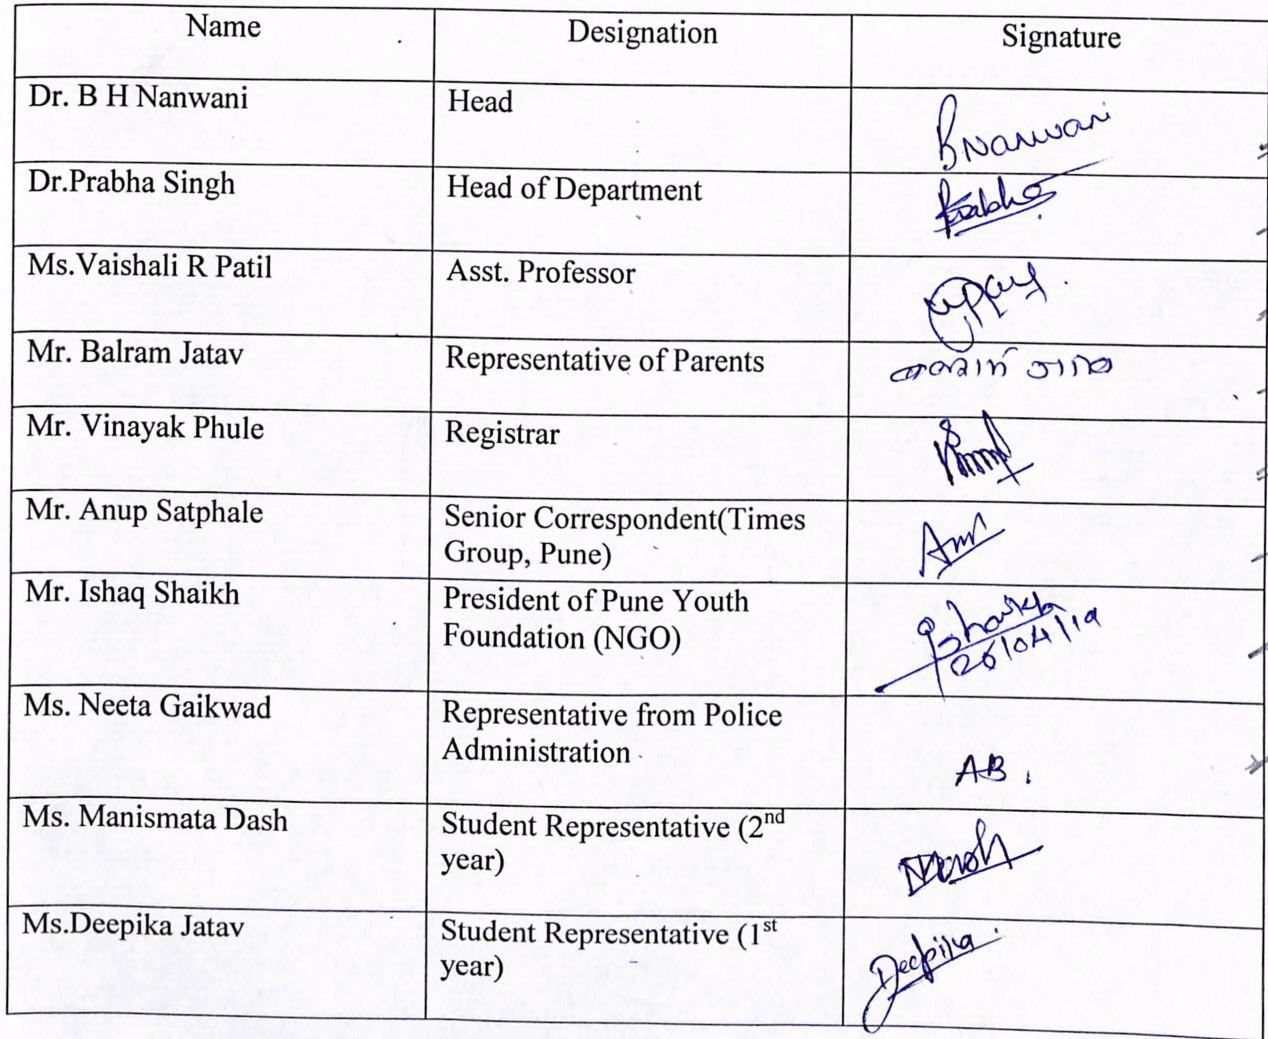 Name Designation Signature
Dr. B H Nanwani Head BNanwani
Dr.Prabha Singh Head of Department Prabha
Ms.Vaishali R Patil Asst. Professor
Mr. Balram Jatav Representative of Parents
Mr. Vinayak Phule Registrar
Mr. Anup Satphale Senior Correspondent(Times
Group, Pune)
Mr. Ishaq Shaikh President of Pune Youth
Foundation (NGO)
Ishaikh
26/04/19
Ms. Neeta Gaikwad Representative from Police
Administration
AB.
Ms. Manismata Dash Student Representative (2nd
year)
Ms.Deepika Jatav Student Representative (1st
year)
Deepika